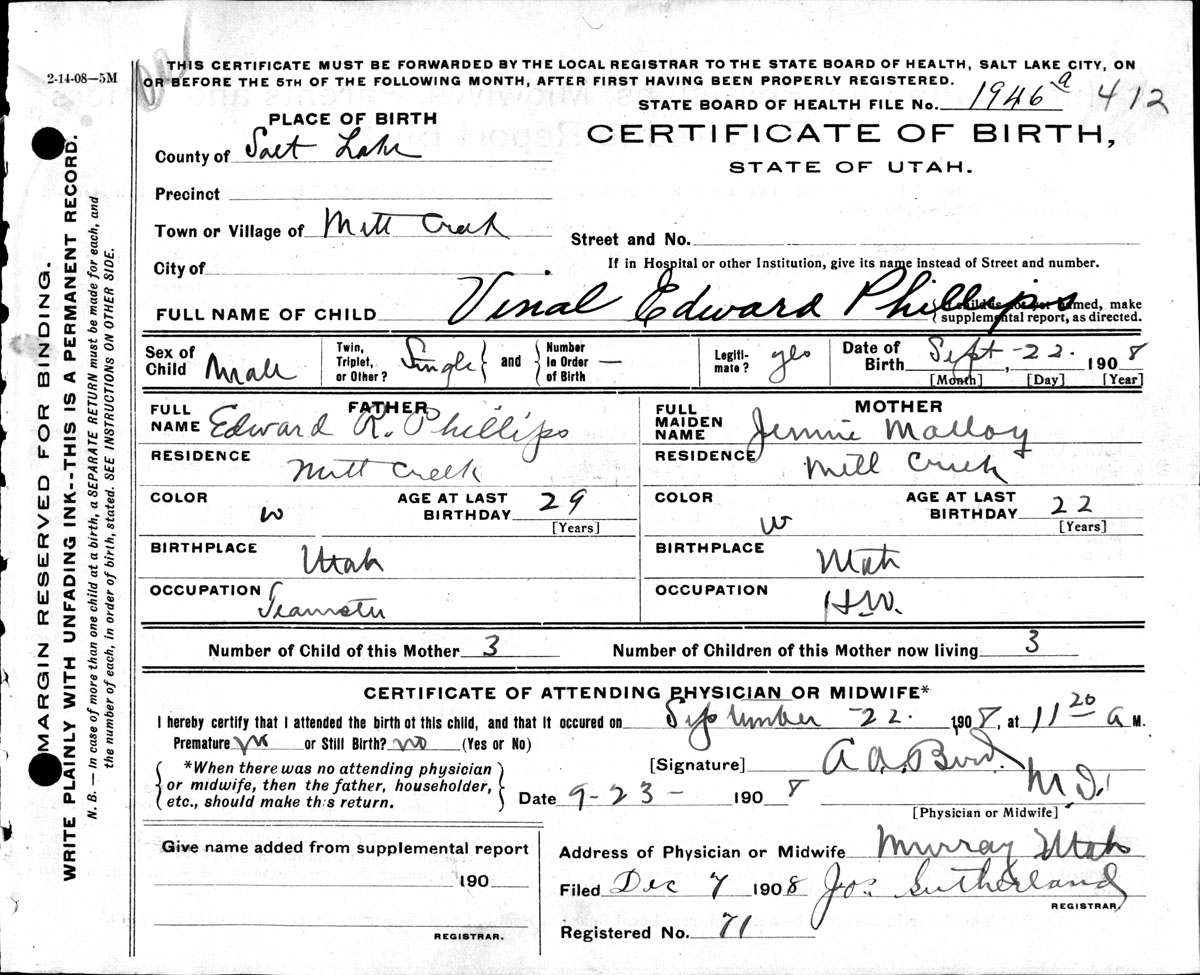 2-14-08—5M
THIS CERTIFICATE MUST BE FORWARDED BY THE LOCAL REGISTRAR TO THE STATE BOARD OF HEALTH, SALT LAKE CITY, ON
OR BEFORE THE 5TH OF THE FOLLOWING MONTH, AFTER FIRST HAVING BEEN PROPERLY REGISTERED.
STATE BOARD OF HEALTH FILE No. 1946 a 412
PLACE OF BIRTH
CERTIFICATE OF BIRTH,
STATE OF UTAH.
County of Salt Lake
Precinct
Town or Village of Mill Creek
Street and No.
City of
If in Hospital or other Institution, give its name instead of Street and number.
FULL NAME OF CHILD Vinal Edward Phillips
{If child is not yet named, make
supplemental report, as directed.
Sex of Child Male
Twin, Triplet, or Other? Single } and { Number in Order of Birth —
Legiti-mate? yes
Date of Birth Sept - 22. , 1908
[Month] [Day] [Year]
FATHER
FULL NAME Edward R. Phillips
RESIDENCE Mill Creek
COLOR W AGE AT LAST BIRTHDAY 29
[Years]
BIRTHPLACE Utah
OCCUPATION Teamster
MOTHER
FULL MAIDEN NAME Jennie Malloy
RESIDENCE Mill Creek
COLOR W AGE AT LAST BIRTHDAY 22
[Years]
BIRTHPLACE Utah
OCCUPATION H.W.
Number of Child of this Mother 3 Number of Children of this Mother now living 3
CERTIFICATE OF ATTENDING PHYSICIAN OR MIDWIFE*
I hereby certify that I attended the birth of this child, and that it occured on September - 22. 1908, at 11 20 a M.
Premature no or Still Birth? no (Yes or No)
{ *When there was no attending physician
or midwife, then the father, householder,
etc., should make this return. }
[Signature] A. A. Bird.
M.D.
Date 9-23- 1908
[Physician or Midwife]
Give name added from supplemental report
190
REGISTRAR.
Address of Physician or Midwife Murray Utah
Filed Dec 7 1908 Jos. Sutherland
REGISTRAR.
Registered No. 71
MARGIN RESERVED FOR BINDING.
WRITE PLAINLY WITH UNFADING INK--THIS IS A PERMANENT RECORD.
N. B. — In case of more than one child at a birth, a SEPARATE RETURN must be made for each, and
the number of each, in order of birth, stated. SEE INSTRUCTIONS ON OTHER SIDE.